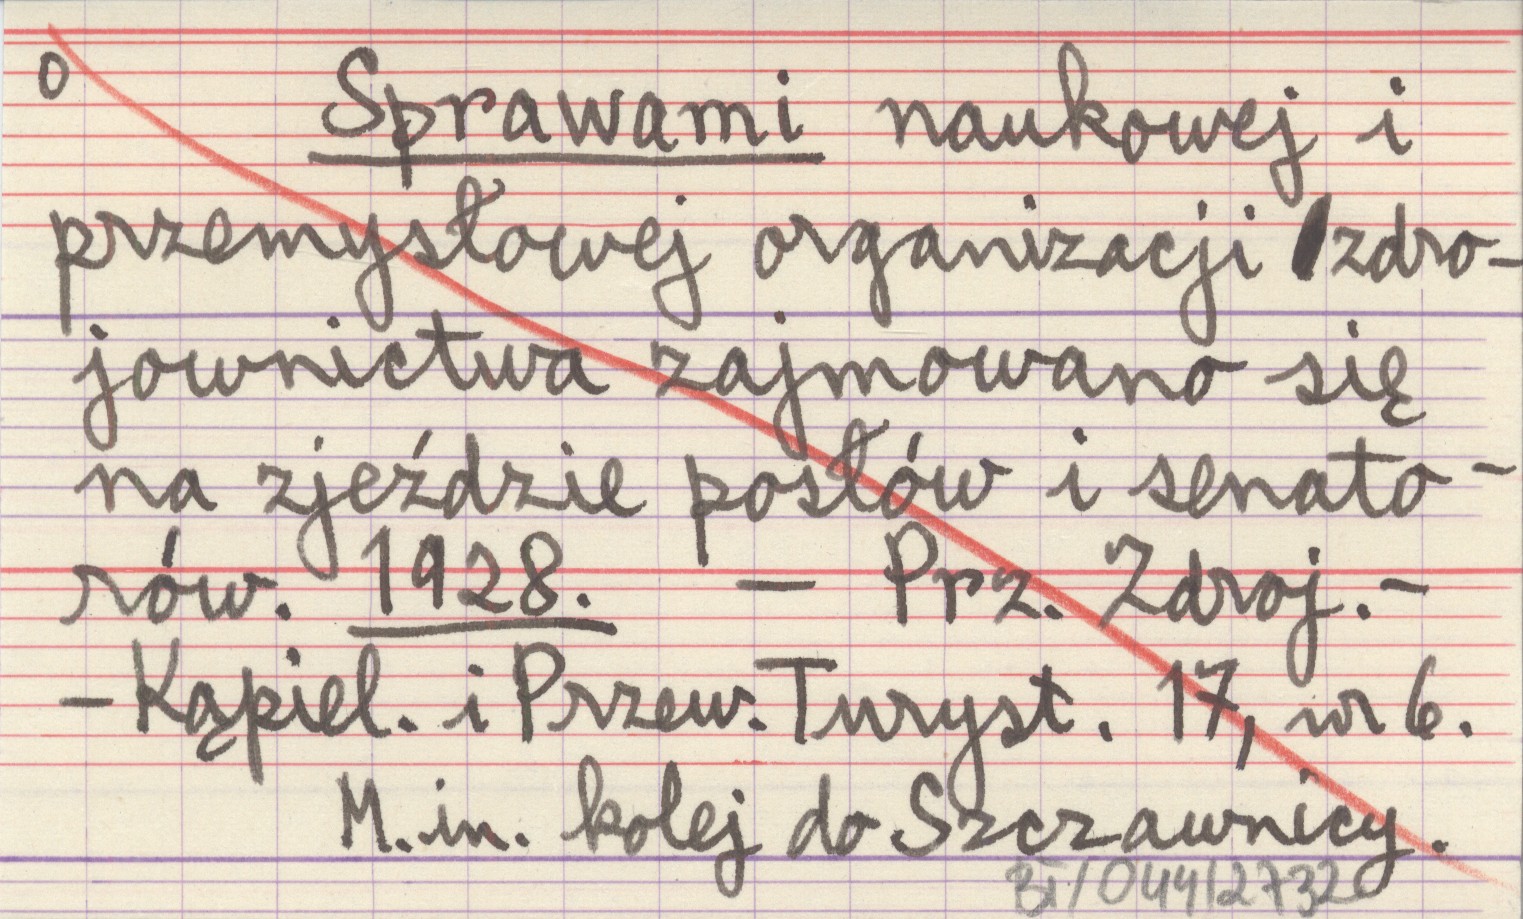 0
Sprawami naukowej i
przemysłowej organizacji zdro-
jownictwa zajmowano się
na zjeździe posłów i senato-
rów. 1928. — Prz. Zdroj.-
-Kąpiel. i Przew. Turyst. 17, nr 6.
M.in. kolej do Szczawnicy.
BT/044/2732